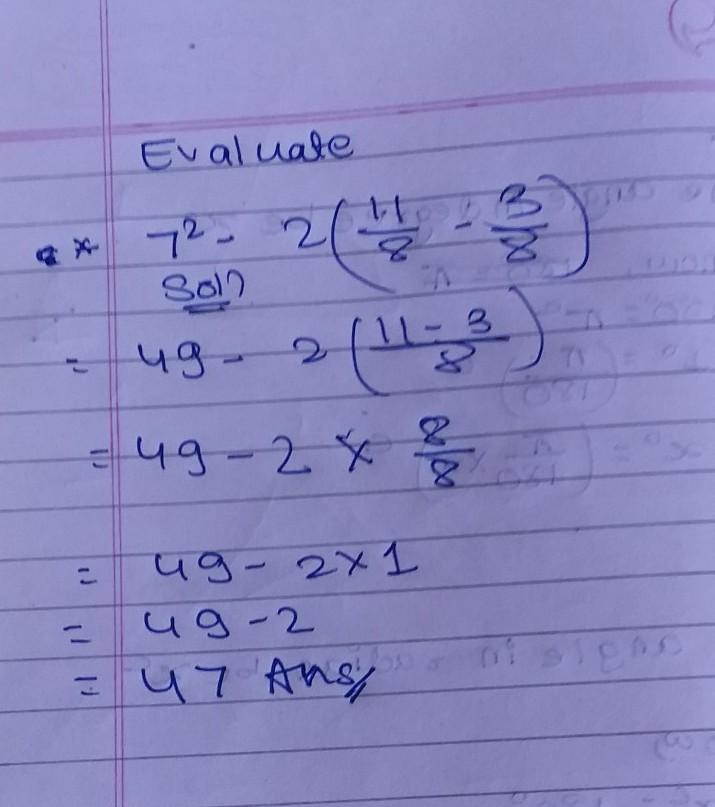 Evaluate
* 7² - 2(11/8 - 3/8)
Soln
= 49 - 2(11-3/8)
= 49 - 2 × 8/8
= 49 - 2×1
= 49 - 2
= 47 Ans